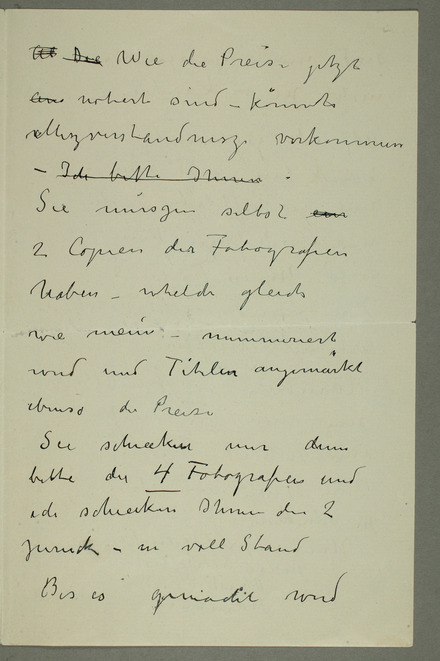 Die Wie die Preise jetzt
notiert sind – könnte
Miszverständnisze vorkommen
– Ich bitte Ihnen .
Sie müszen selbst
2 Copien der Fotografien
haben – gleich
wie mein – nummeriert
wird und Titlen angemärkt
ebenso die Preise
Sie schicken mir dann
bitte die 4 Fotografien und
ich schicken Ihnen die 2
zurück – in voll Stand
Bis es gemacht wird